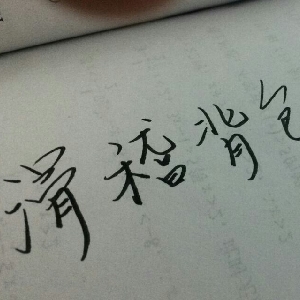 滑稽背包